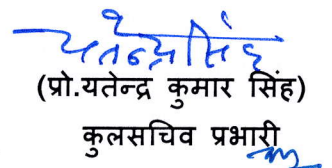 यतेन्द्र सिंह
(प्रो.यतेन्द्र कुमार सिंह)
कुलसचिव प्रभारी